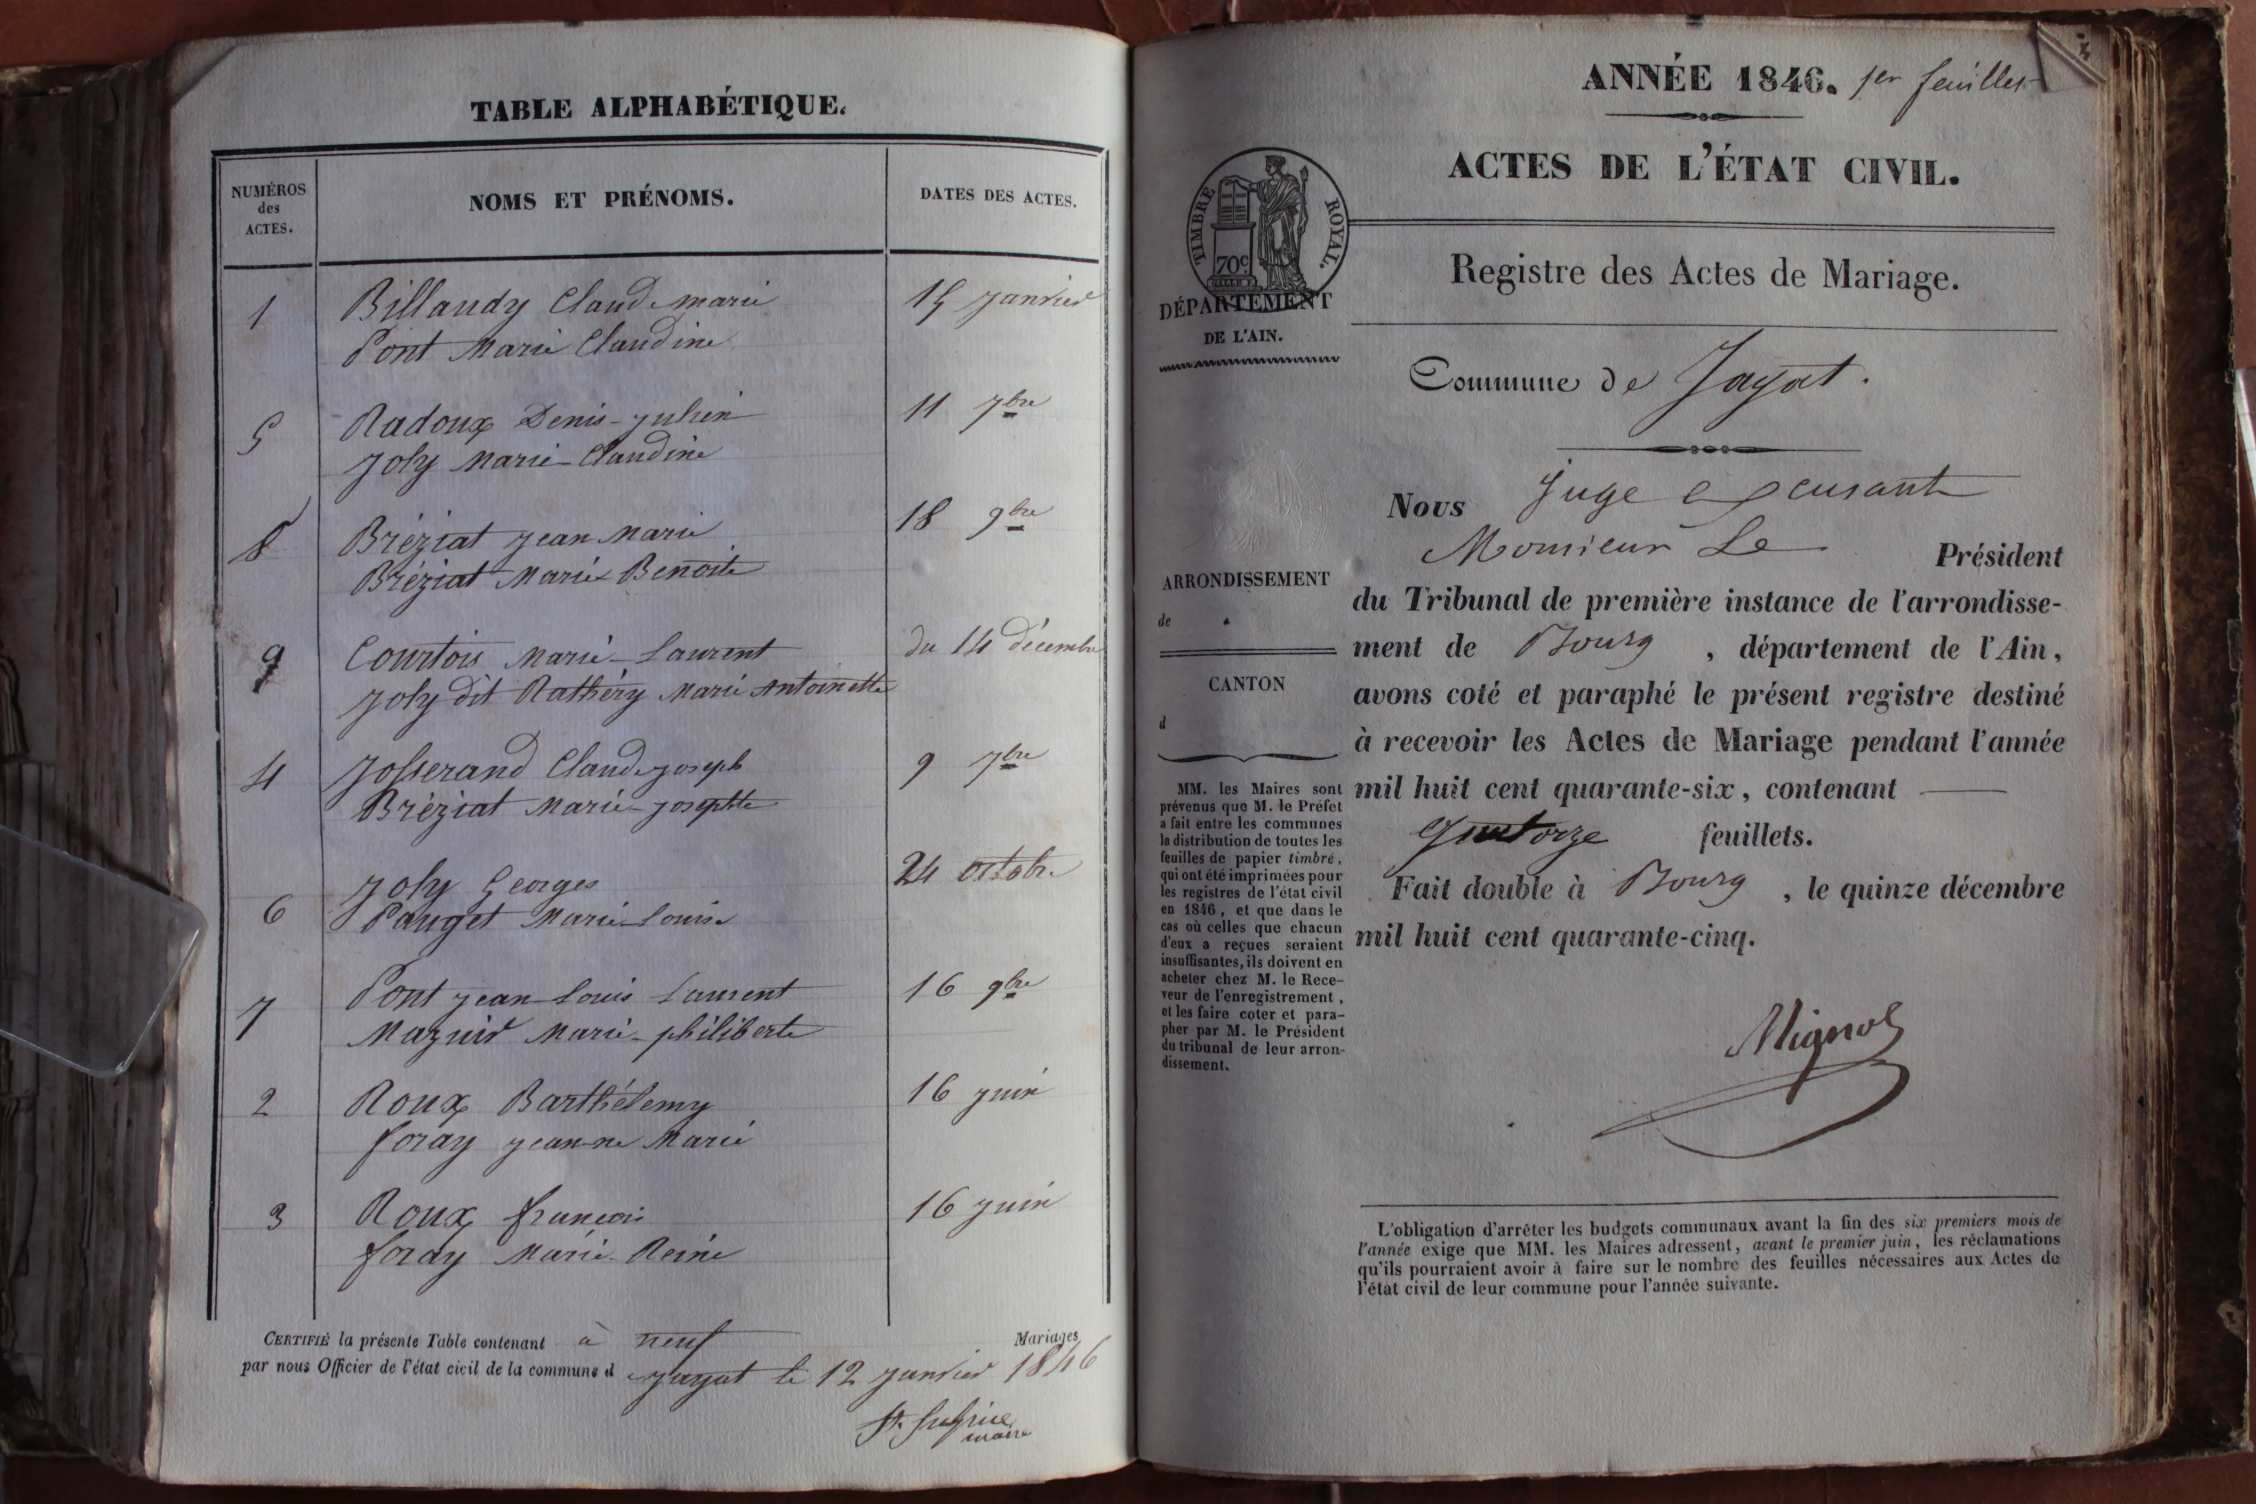 TABLE ALPHABÉTIQUE.
NUMÉROS
des
ACTES.
NOMS ET PRÉNOMS.
DATES DES ACTES.
1 Billaudy Claude marie 15 janvier
Pont Marie Claudine
5 Radoux Denis-julien 11 7bre
Joly Marie-Claudine
8 Bréziat jean Marie 18 9bre
Bréziat Marie Benoite
9 Courtois Marie-Laurent du 14 décembre
Joly dit Rathéry Marie Antoinette
4 Josserand Claude joseph 9 7bre
Bréziat Marie-josephte
6 Joly Georges 24 octobre
Pauget Marie-Louise
7 Pont jean-Louis Laurent 16 9bre
Mazuir Marie-philiberte
2 Roux Barthélemy 16 juin
foray jeanne Marie
3 Roux françois 16 juin
foray Marie-Reine
CERTIFIÉ la présente Table contenant à neuf Mariages
par nous Officier de l'état civil de la commune d jayat le 12 janvier 1846
maire
ANNÉE 1846. 1er feuillet
ACTES DE L'ÉTAT CIVIL.
TIMBRE ROYAL.
70c
DÉPARTEMENT
DE L'AIN.
Registre des Actes de Mariage.
Commune de Jayat.
Nous Juge excusant
Monsieur Le Président
du Tribunal de première instance de l'arrondisse-
ment de Bourg, département de l'Ain,
avons coté et paraphé le présent registre destiné
à recevoir les Actes de Mariage pendant l'année
mil huit cent quarante-six, contenant
quatorze feuillets.
Fait double à Bourg, le quinze décembre
mil huit cent quarante-cinq.
ARRONDISSEMENT
de
CANTON
d
MM. les Maires sont
prévenus que M. le Préfet
a fait entre les communes
la distribution de toutes les
feuilles de papier timbré,
qui ont été imprimées pour
les registres de l'état civil
en 1846, et que dans le
cas où celles que chacun
d'eux a reçues seraient
insuffisantes, ils doivent en
acheter chez M. le Rece-
veur de l'enregistrement,
et les faire coter et para-
pher par M. le Président
du tribunal de leur arron-
dissement.
L'obligation d'arrêter les budgets communaux avant la fin des six premiers mois de
l'année exige que MM. les Maires adressent, avant le premier juin, les réclamations
qu'ils pourraient avoir à faire sur le nombre des feuilles nécessaires aux Actes de
l'état civil de leur commune pour l'année suivante.